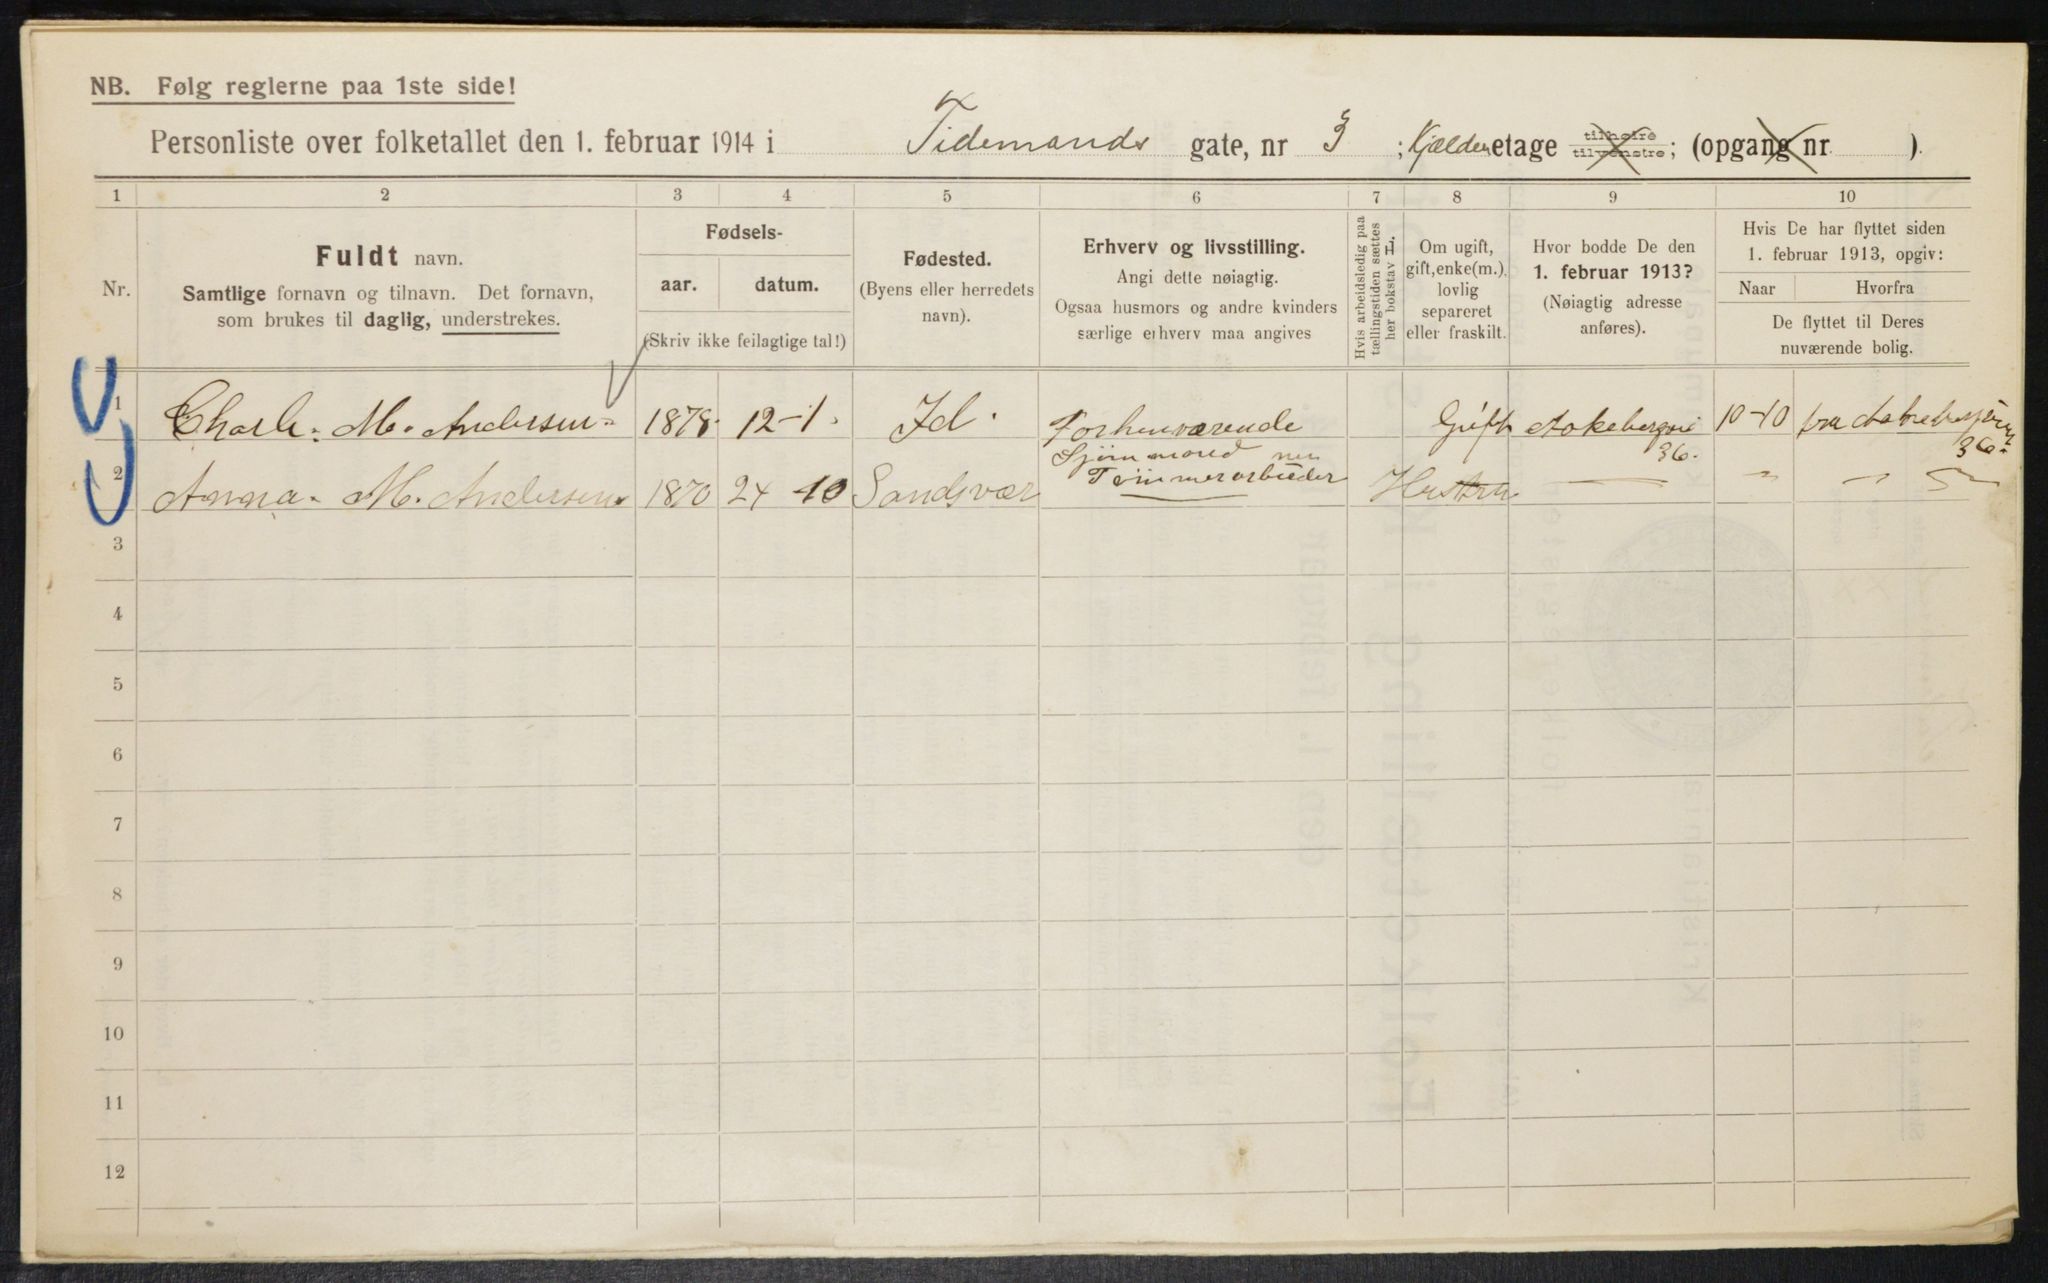 NB. Følg reglerne paa 1ste side!
Personliste over folketallet den 1. februar 1914 i Tidemands gate, nr 3; Kjælder etage tilhøire tilvenstre; (opgang nr ).
1 2 3 4 5 6 7 8 9 10
Nr.
Fuldt navn.
Samtlige fornavn og tilnavn. Det fornavn,
som brukes til daglig, understrekes.
Fødsels-
aar. datum.
(Skriv ikke feilagtige tal!)
Fødested.
(Byens eller herredets
navn).
Erhverv og livsstilling.
Angi dette nøiagtig.
Ogsaa husmors og andre kvinders
særlige erhverv maa angives
Hvis arbeidsledig paa
tællingstiden sættes
her bokstav L.
Om ugift,
gift, enke(m.),
lovlig
separeret
eller fraskilt.
Hvor bodde De den
1. februar 1913?
(Nøiagtig adresse
anføres).
Hvis De har flyttet siden
1. februar 1913, opgiv:
Naar Hvorfra
De flyttet til Deres
nuværende bolig.
1 M. Andersen 1878 12-1. Id. Forhenværende Gift 10-10 fra
Sjømmand 36. 36.
2 Anna M. Andersen 1870 24 10 Sandsvær Tømmerarbeider Hustru — " — "
3
4
5
6
7
8
9
10
11
12